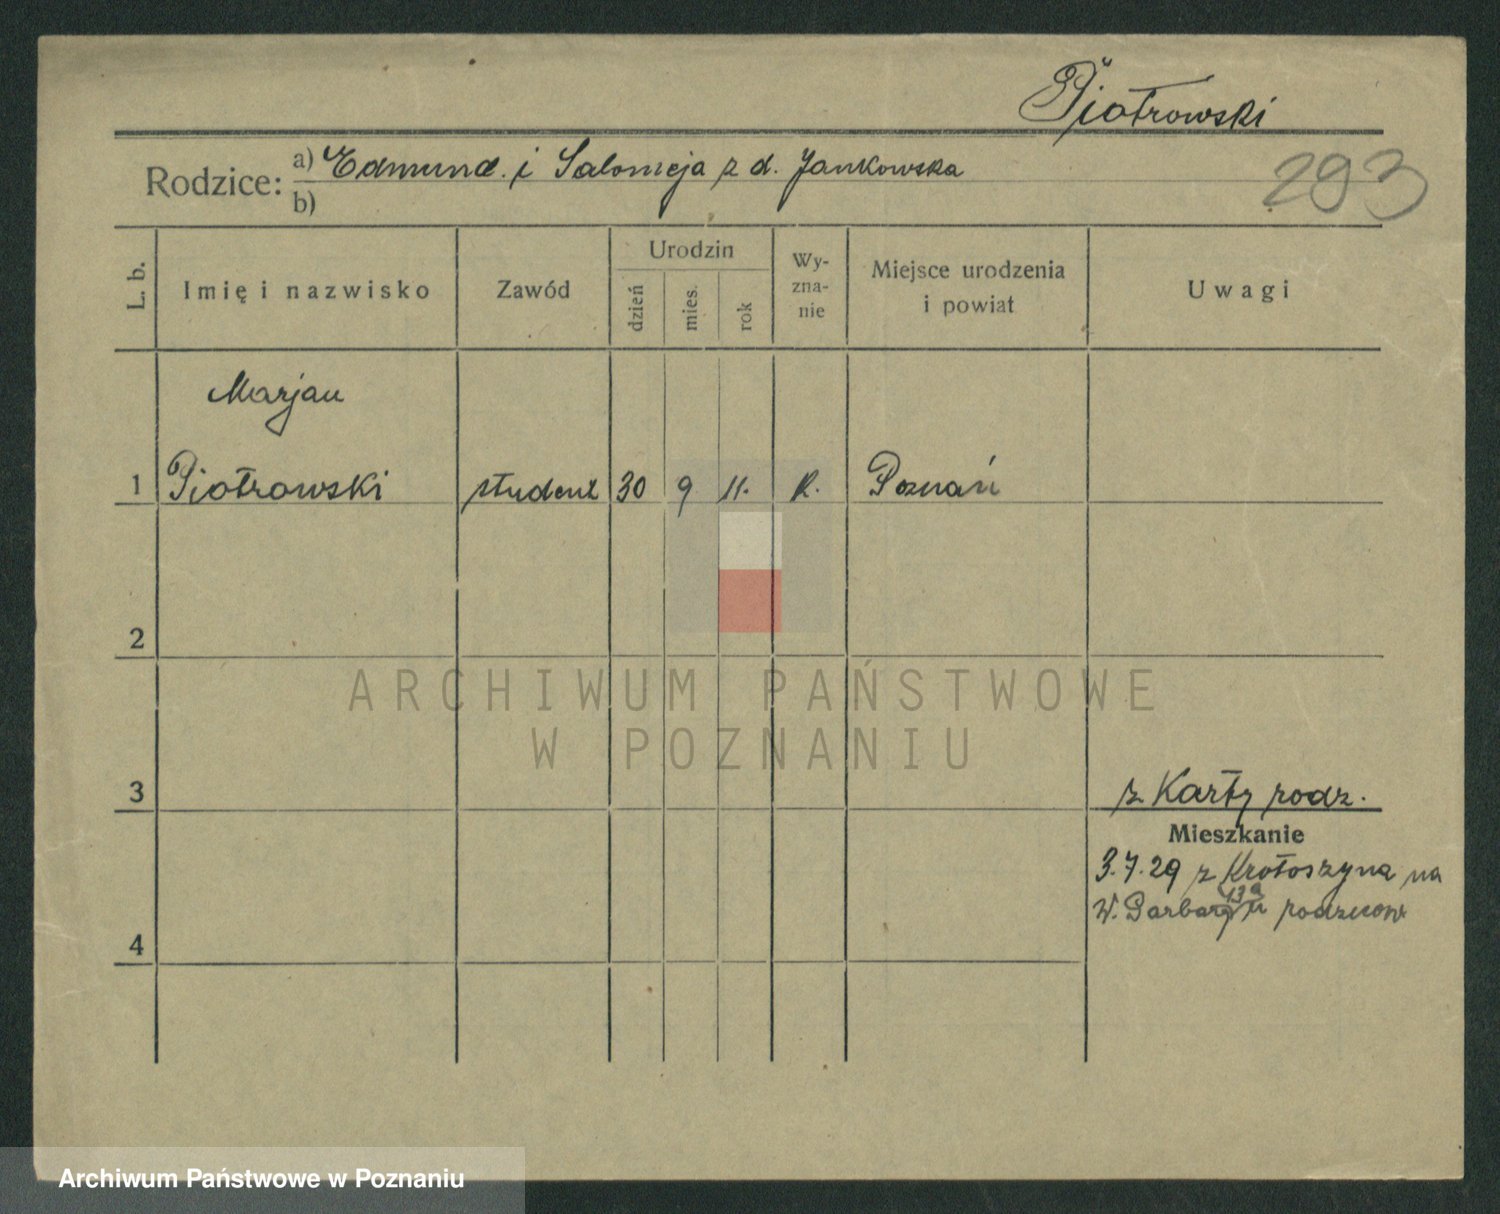 Piotrowski
Rodzice: a) Edmund i Salomeja z d. Jankowska
b)
293
L. b.
Imię i nazwisko
Zawód
Urodzin
dzień
mies.
rok
Wy-
zna-
nie
Miejsce urodzenia
i powiat
Uwagi
Marjan
1 Piotrowski student 30 9 11. R. Poznań
2
ARCHIWUM PAŃSTWOWE
W POZNANIU
3
z Karty rodz.
Mieszkanie
3.7.29 z Krotoszyna na
13a
W. Garbary u rodziców
4
Archiwum Państwowe w Poznaniu